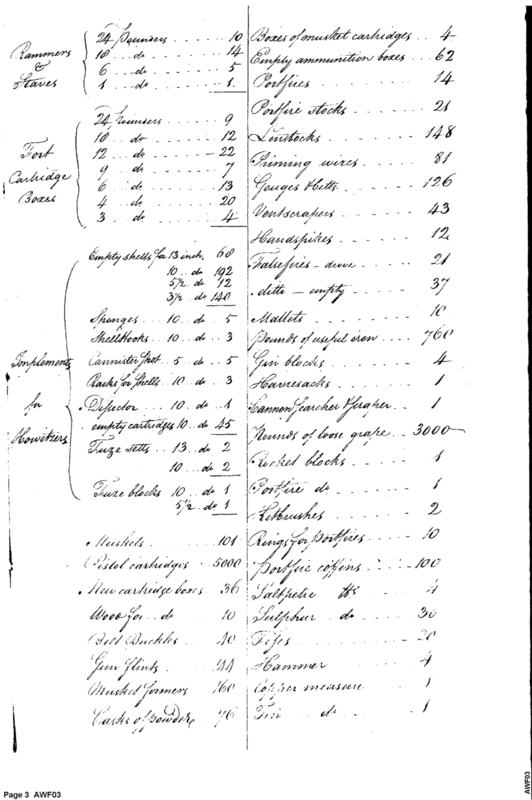 Rammers & Staves
24 Pounders 10
18 do 14
6 do 5
1 do 1
Fort Cartridge Boxes
24 Pounders 9
18 do 12
12 do 22
9 do 7
6 do 13
4 do 20
3 do 4
Implements for Howitzers
Empty shells for 13 inch 68
10 do 192
5½ do 12
3½ do 140
Sponges 10 do 5
Shell Hooks 10 do 3
Cannister Shot 5 do 5
Racks for Shells 10 do 3
10 do 1
empty cartridges 10 do 45
Fuze setts 13 do 2
10 do 2
Fuze blocks 10 do 1
5½ do 1
Muskets 101
Pistol cartridges 5000
New cartridge boxes 36
Wood for do 10
Belt Buckles 40
Gun flints 44
Musket formers 160
Casks of powder 76
Boxes of musket cartridges 4
Empty ammunition boxes 62
Portfires 14
Portfire stocks 21
Linstocks 148
Priming wires 81
Gouges & bitts 126
Ventscrapers 43
Handspikes 12
Falsefires - drove 21
ditto - empty 37
Mallets 10
Pounds of useful iron 760
Gin blocks 4
Haversacks 1
Cannon searcher & scraper 1
Rounds of loose grape 3000
Rocket blocks 1
Portfire do 1
Kitbrushes 2
Rings for portfires 10
Portfire coffins 100
Saltpetre lbs 4
Sulphur do 30
Fifes 20
Hammer 4
Copper measure 1
Tin do 1
Page 3 AWF03
AWF03